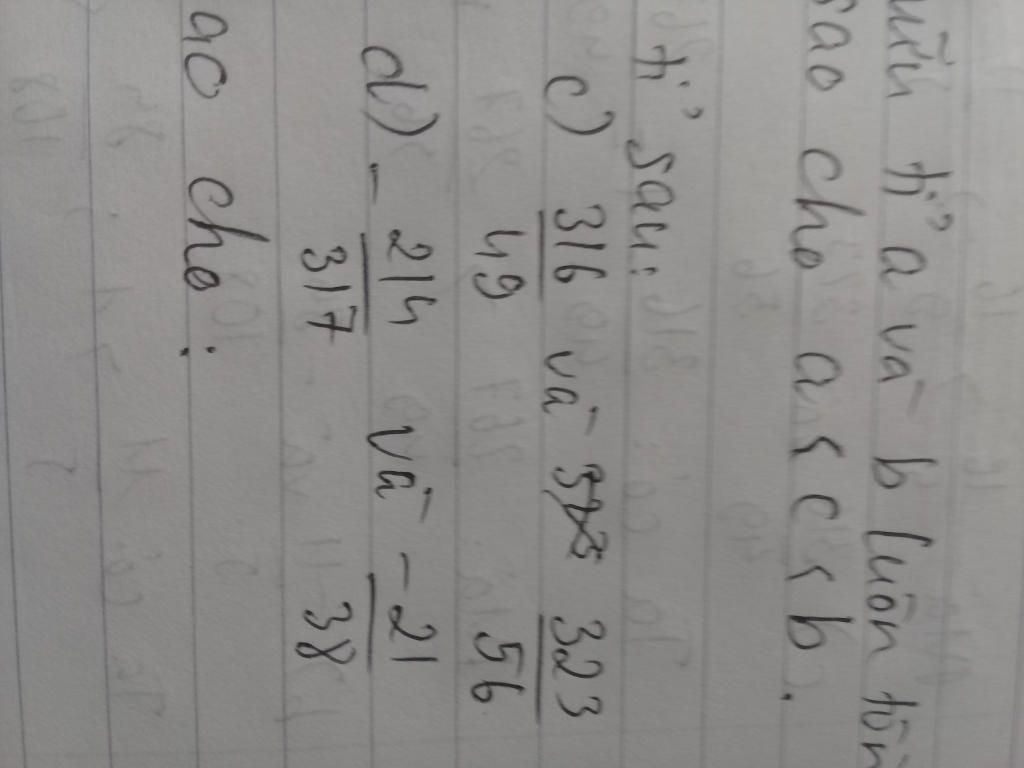 ữu tỉ a và b luôn tồn
sao cho a ≤ c ≤ b.
tỉ sau:
c) 316/49 và 323/56
d) -214/317 và -21/38
ao cho: